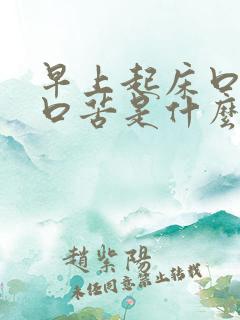 早上起床口
口苦是什麼
趙紫陽
未经同意禁止转载